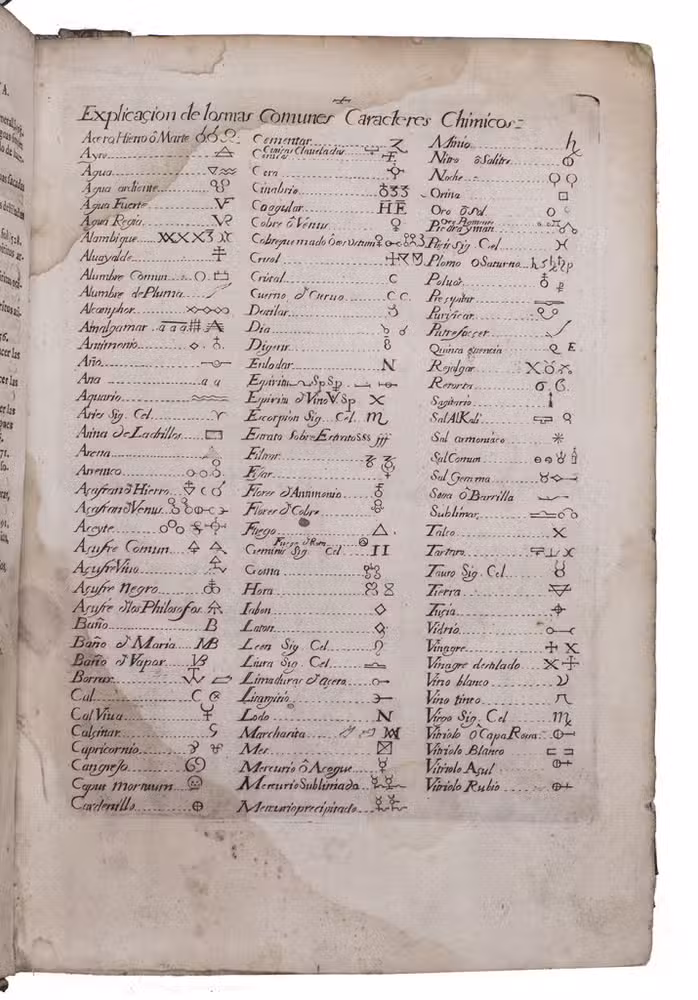 Explicaçion de losmas Comunes Caracteres Chimicos
Acero Hierro ô Marte
Ayre
Agua
Agua ardiente
Agua Fuerte
Agua Regia
Alambique
Alvayalde
Alumbre Comun
Alumbre de Pluma
Alcamphor
Amalgamar
Antimonio
Año
Ana
Aquario
Aries Sig. Cel.
Arina de Ladrillos
Arena
Arsenico
Açafran đ Hierro
Açafran đ Venus
Aceyte
Açufre Comun
Açufre Vivo
Açufre Negro
Açufre đ los Philosofos
Baño B
Baño đ Maria MB
Baño đ Vapor VB
Borrax
Cal C
Cal Viva
Calçinar
Capricornio
Cangrejo
Caput mortuum
Cardenillo
Cementar
Cenizas Claveladas
Cenizas
Cera
Cinabrio
Coagular
Cobre ô Venus
Cobre quemado
Crisol
Cristal C
Cuerno đ Cieruo C C
Destilar
Dia
Digerir
Enlodar N
Espiritu Sp Sp
Espiritu đ Vino V Sp X
Escorpion Sig. Cel.
Estrato Sobre Estrato SSS fff
Filtrar
Fixar
Flores đ Antimonio
Flores đ Cobre
Fuego
Geminis Sig. Cel. II
Goma
Hora
Iabon
Laton
Leon Sig. Cel.
Libra Sig. Cel.
Limaduras đ açero
Litargirio
Lodo N
Marchasita
Mes
Mercurio ô Açogue
Mercurio Sublimado
Mercurio precipitado
Minio
Nitro ô Salitre
Noche
Orina
Oro ô Sol
Piedra yman
Pecis Sig. Cel
Plomo ô Saturno
Polvos
Precipitar
Purificar
Putrefacçer
Quinta esencia Q E
Rejalgar
Retorta
Sagitario
Sal Al Kali
Sal armoniaco
Sal Comun
Sal Gemma
Sosa ô Barrilla
Sublimar
Talco X
Tartaro
Tauro Sig. Cel
Tierra
Tuçia
Vidrio
Vinagre
Vinagre destilado
Vino blanco
Vino tinto
Virgo Sig. Cel
Vitriolo ô Capa Rosa
Vitriolo Blanco
Vitriolo Azul
Vitriolo Rubio